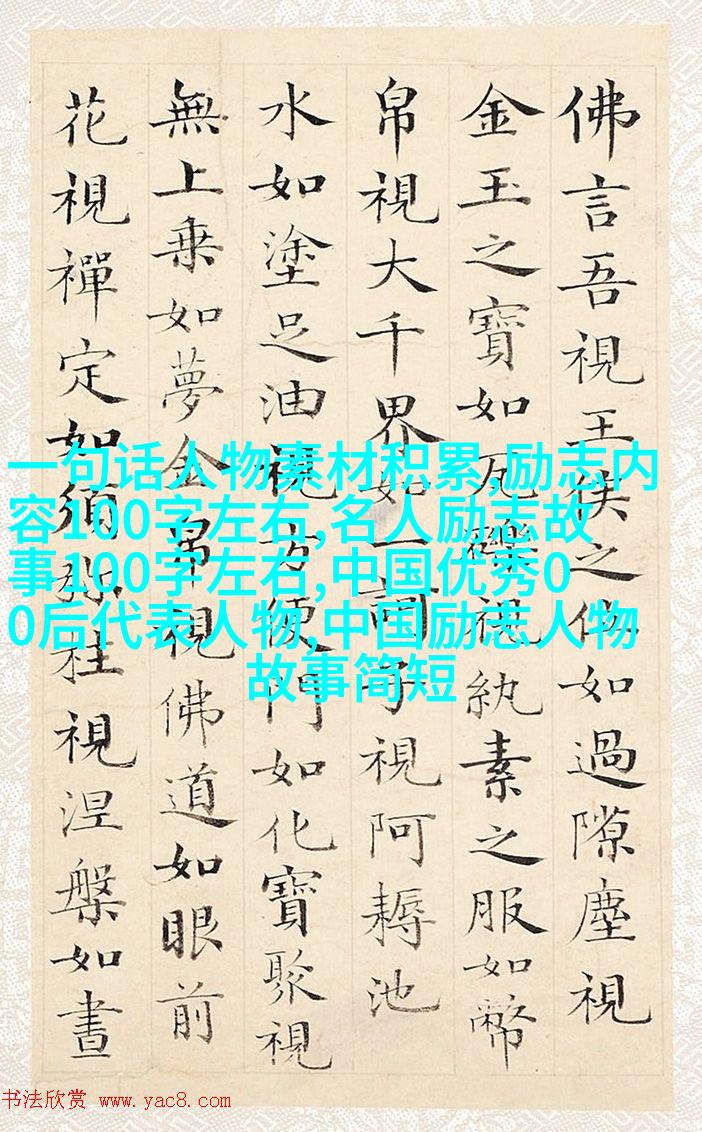 佛言吾視王侯之位如過隙塵視
金玉之寶如瓦礫視紈素之服如幣
帛視大千界如一訶子視阿耨池
水如塗足油視方便門如化寶聚視
無上乗如夢金帛視佛道如眼前
花視禪定如須弥柱視涅槃如晝
一句话人物素材积累,励志内
容100字左右,名人励志故
事100字左右,中国优秀0
0后代表人物,中国励志人物
故事简短
书法欣赏 www.yac8.com